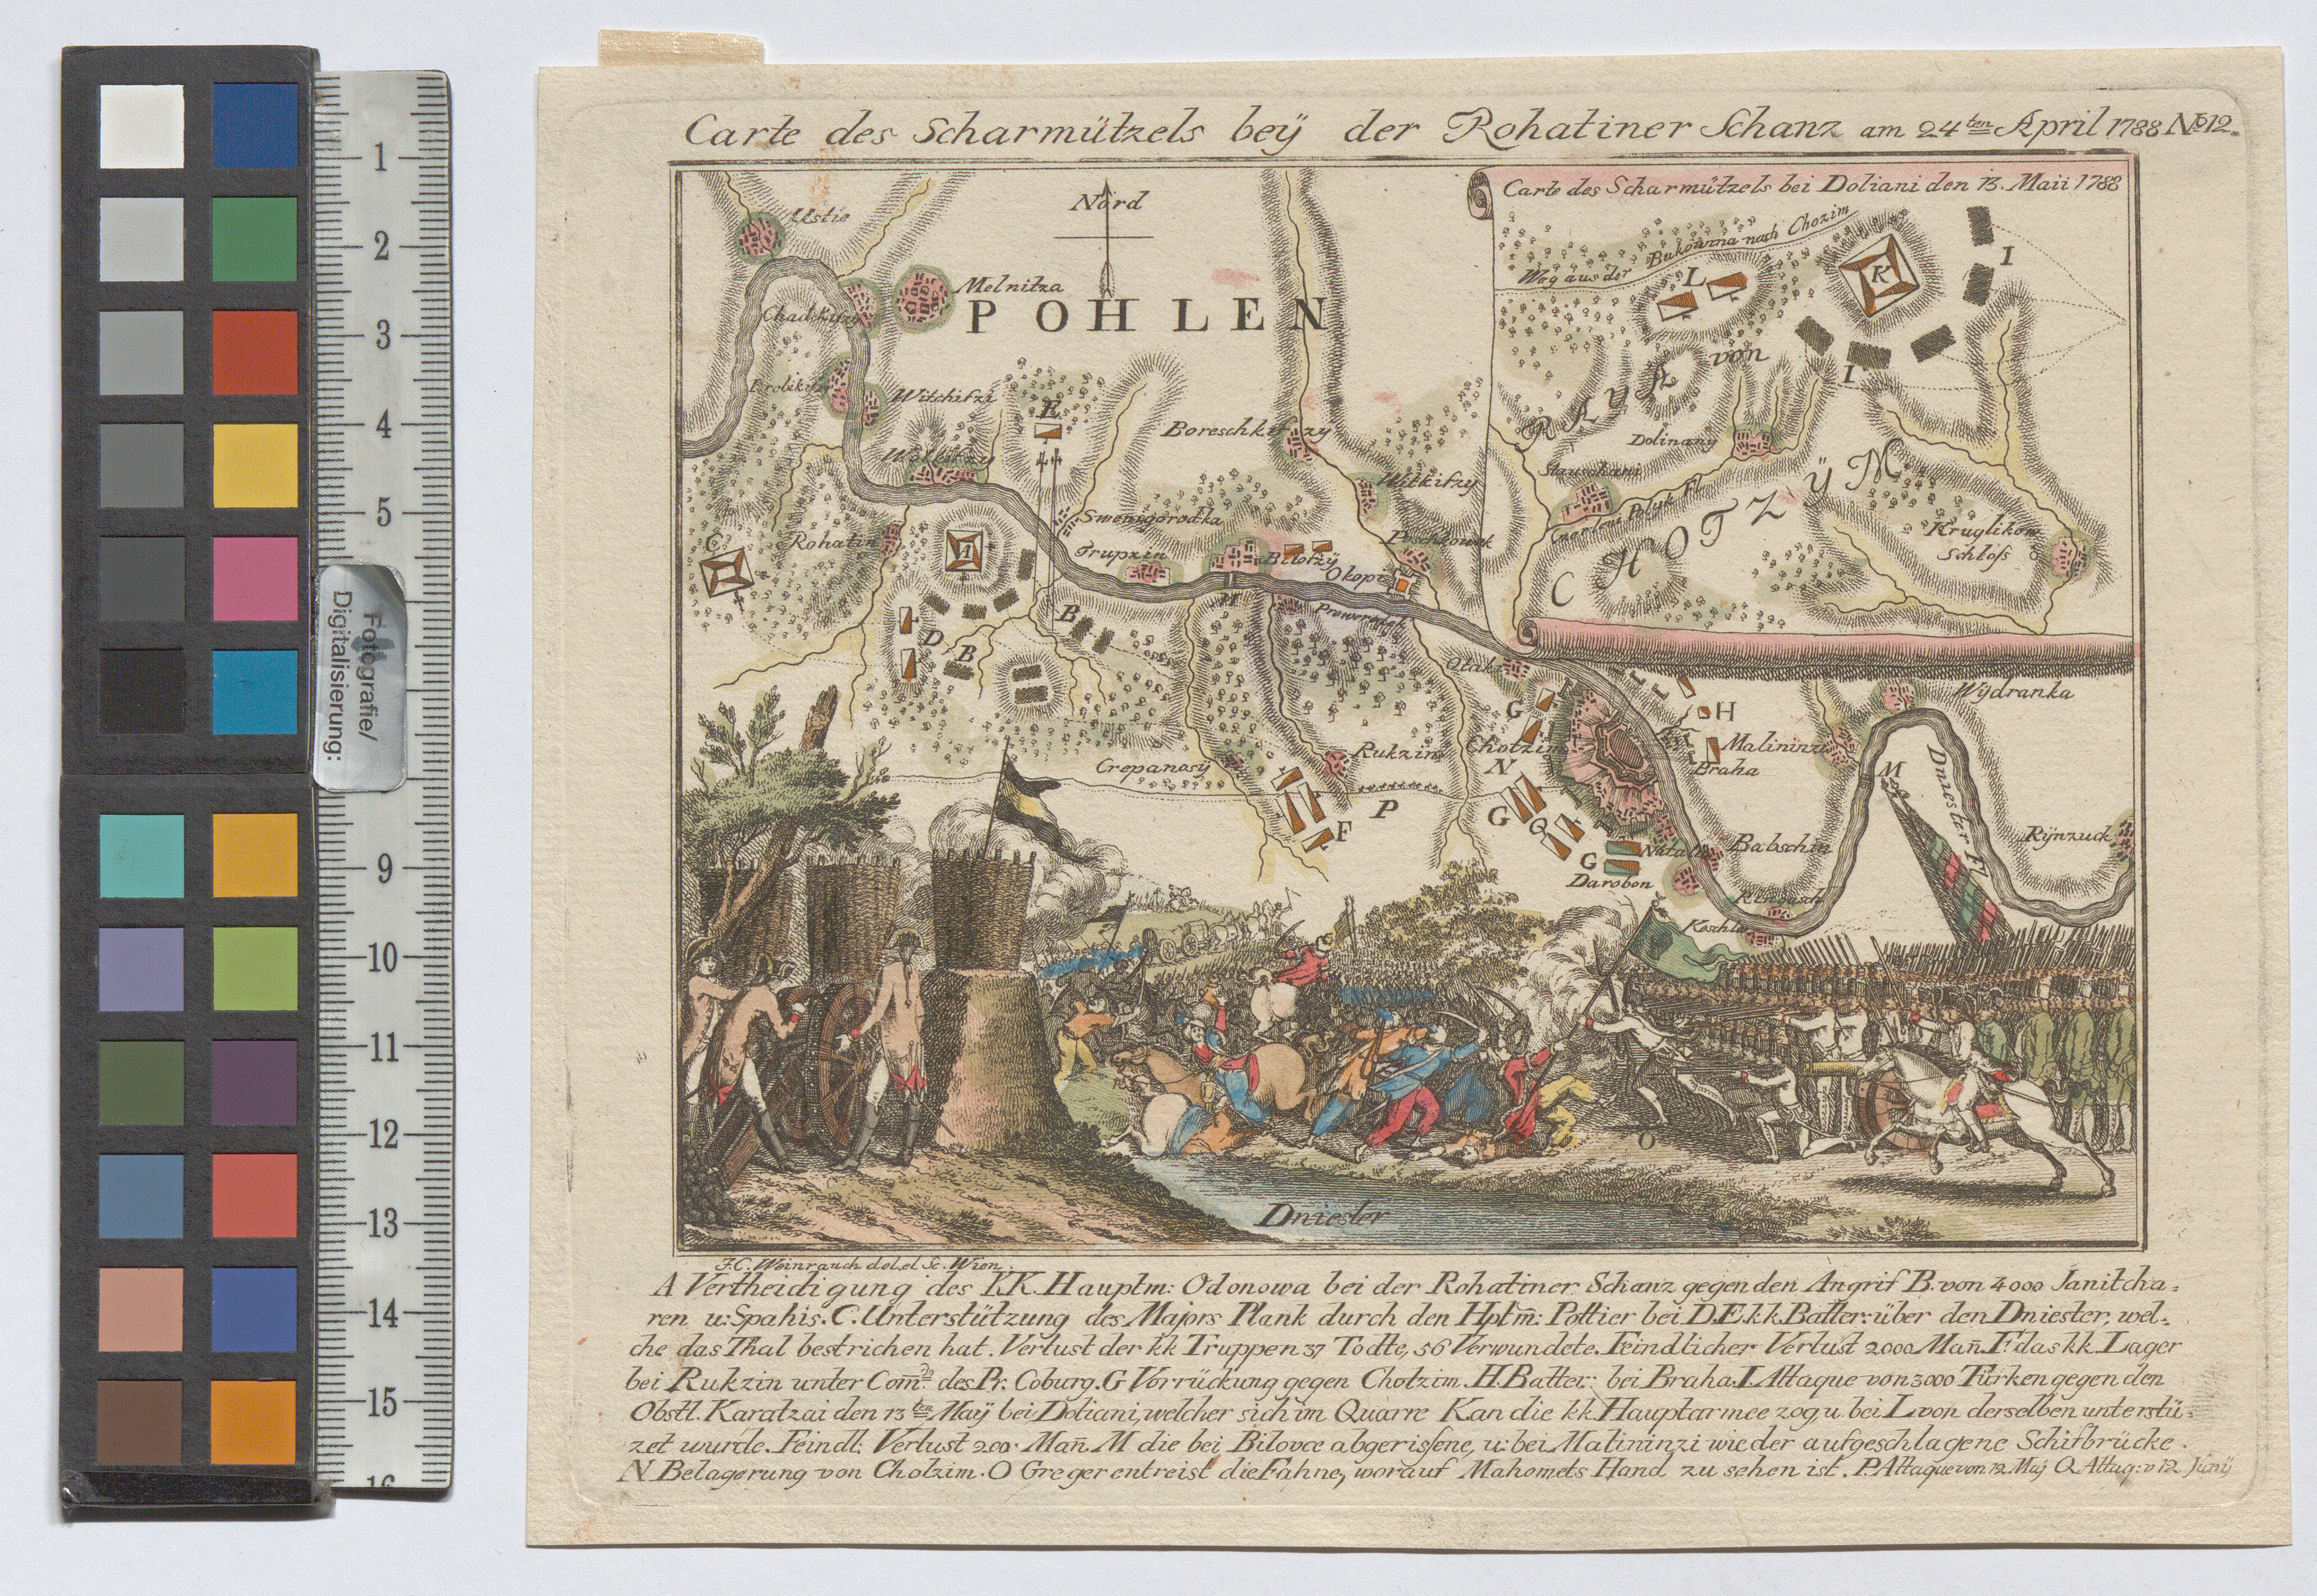 Carte des Scharmützels beÿ der Rohatiner Schanz am 24ten April 1788 No 12.
Carte des Scharmützels bei Doliani den 13. Maii 1788
Nord
Ustie
Melnitza
POHLEN
Weg aus der Bukowina nach Chozim
L
K
I
I
RAYA von
CHOTZŸM
Witchitzi
E
Boreschkifzy
Dolinany
Wolkifzy
Witkifzy
Stauschani
Kruglikow Schloss
C
Rohatin
A
Swenigorodka
Trupzin
Bilofzÿ
Okopi
M
B
D
B
Otaki
Wÿdranka
G
H
Chotzim
Malininzi
Rukzin
Braha
Crepanosÿ
N
M
Dniester Fl
P
G
Q
F
G
Babschin
Rÿnzuck
Darobon
O
Dniester
F.C. Weinrauch del. et Sc. Wien.
A Vertheidigung des I.K. Hauptm: Odonowa bei der Rohatiner Schanz gegen den Angrif B. von 4000 Janitcha-
ren u: Spahis. C. Unterstützung des Majors Plank durch den Hptm̄: Pottier bei D.E. kk. Batter: über den Dniester, wel-
che das Thal bestrichen hat. Verlust der kk Truppen 37 Todte, 56 Verwundete. Feindlicher Verlust 2000 Man̄. F das kk Lager
bei Rukzin unter Com̄do des Pr: Coburg. G Vorrückung gegen Chotzim. H. Batter: bei Braha. I. Attaque von 3000 Türken gegen den
Obstl. Karatzai den 13ten Maÿ bei Doliani, welcher sich im Quarre K an die kk. Hauptarmee zog, u. bei L von derselben unterstü-
zet wurde. Feindl: Verlust 200 Man̄. M die bei Bilovce abgerissene, u: bei Malininzi wieder aufgeschlagene Schifbrücke.
N Belagerung von Chotzim. O Greger entreist die Fahne, worauf Mahomets Hand zu sehen ist. P. Attaque von 12 Maÿ Q. Attaq: v 12 Junÿ
1
2
3
4
5
Fotografie/
Digitalisierung:
9
10
11
12
13
14
15
16